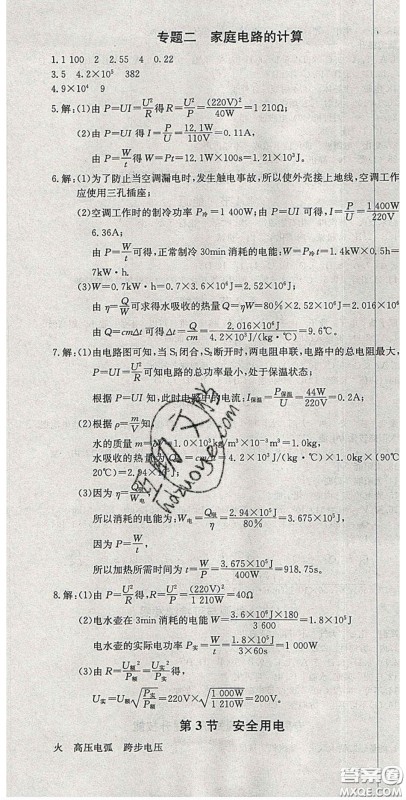 专题二 家庭电路的计算
1.1 100 2 2.55 4 0.22
3.5 4.2×10⁵ 382
4.9×10⁴ 9
5.解:(1)由 P=UI=U²/R得R=U²/P=(220V)²/40W=1 210Ω;
(2)由 P=UI 可得 I=P/U=12.1W/110V=0.11A,
由 P=W/t可得 W=Pt=12.1W×100s=1.21×10³J。
6.解:(1)为了防止当空调漏电时,发生触电事故,所以使外壳接上地线,空调工作时
应使用三孔插座。
(2)空调工作时的制冷功率 P冷=1 400W;由 P=UI 可得,I=P/U=1 400W/220V
6.36A;
由 P=W/t可得,正常制冷30min消耗的电能:W=Pt=1.4kW×0.5h=
7kW·h.
(3)W=0.7kW·h=0.7×3.6×10⁶J=2.52×10⁶J;
由 η=Q/W可求得水吸收的热量Q=ηW=80%×2.52×10⁶J=2.016×10⁶
由 Q=cmΔt 可得 Δt=Q/cm=2.016×10⁶J/4.2×10³J/(kg·℃)=9.6℃。
7.解:(1)由电路图可知,当S₁闭合,S₂断开时,两电阻串联,电路中的总电阻最大,
P=UI=U²/R可知电路的总功率最小,处于保温状态;
根据 P=UI 可知,此时电路中的电流:I保温=P保温/U=44W/220V=0.2A。
(2)根据 ρ=m/V可知,
水的质量 m=
水吸收的热量为 Q
20℃)=2.94×10⁵J
(3)因为 η=
所以消耗的电能为:W电=Q吸/η=2.94×10⁵J/80%=3.675×10⁵J,
因为 P=W/t,
所以加热所需时间为 t=W/P=3.675×10⁵J/400W=918.75s。
8.解:(1)由 P=U²/R得,R=U²/P=U²/1 210W=40Ω
(2)电水壶在3min内消耗的电能 W=3.6×10⁶J×180/3 600=1.8×10⁵J
电水壶的实际电功率 P实=W/t=1.8×10⁵J/3×60s=1 000W
(3)由 R=U额²/P额=U实²/P实得,
U实=U额√P实/P额=220V×√1 000W/1 210W=200V
第3节 安全用电
火 高压电弧 跨步电压
答案圈
MXQE.COM